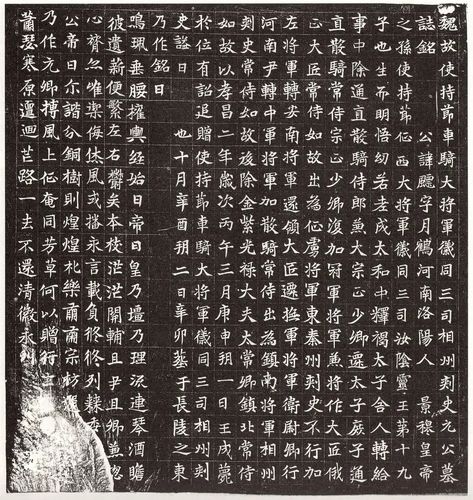 魏故使持節車騎大將軍儀同三司相州刺史元公墓
誌銘 公諱字月鶴河南洛陽人 景穆皇帝
之孫使持節征西大將軍儀同三司汝陰靈王第十九
子也生而明悟幼若老成太和中釋褐太子舍人轉給
事中除通直散騎侍郎兼大宗正少卿遷太子庶子通
直散騎常侍宗正少卿復加冠軍將軍兼將作大匠俄
正大匠常侍如故出為征虜將軍東秦州刺史不行加
左將軍轉安南將軍還領大匠遷撫軍將軍衛尉卿行
河南尹轉中軍將軍加散騎常侍出為鎮南將軍相州
刺史常侍如故後除金紫光祿大夫太常卿鎮北常侍
如故以孝昌二年歲次丙午三月庚申朔一日壬戌薨
於位有詔追贈使持節車騎大將軍儀同三司相州刺
史謚曰 也十月辛酉朔二日辛卯葬于長陵之東
乃作銘曰
鳴珮垂腰擢輿經始曰帝曰皇乃壇乃理流連琴酒瞻
彼遺薪便繁左右鬱矣本枝茫茫開輔且尹且卿兼惣
心膂忽唯梁侮休風或播永言載負脩脩列棘
公帝曰尒諧分銅樹則煌煌札樂肅肅宗祊
乃作元卿搏風上征奄同芳草何以贈行
蕭瑟寒原邅迴芒路一去不還清徽永